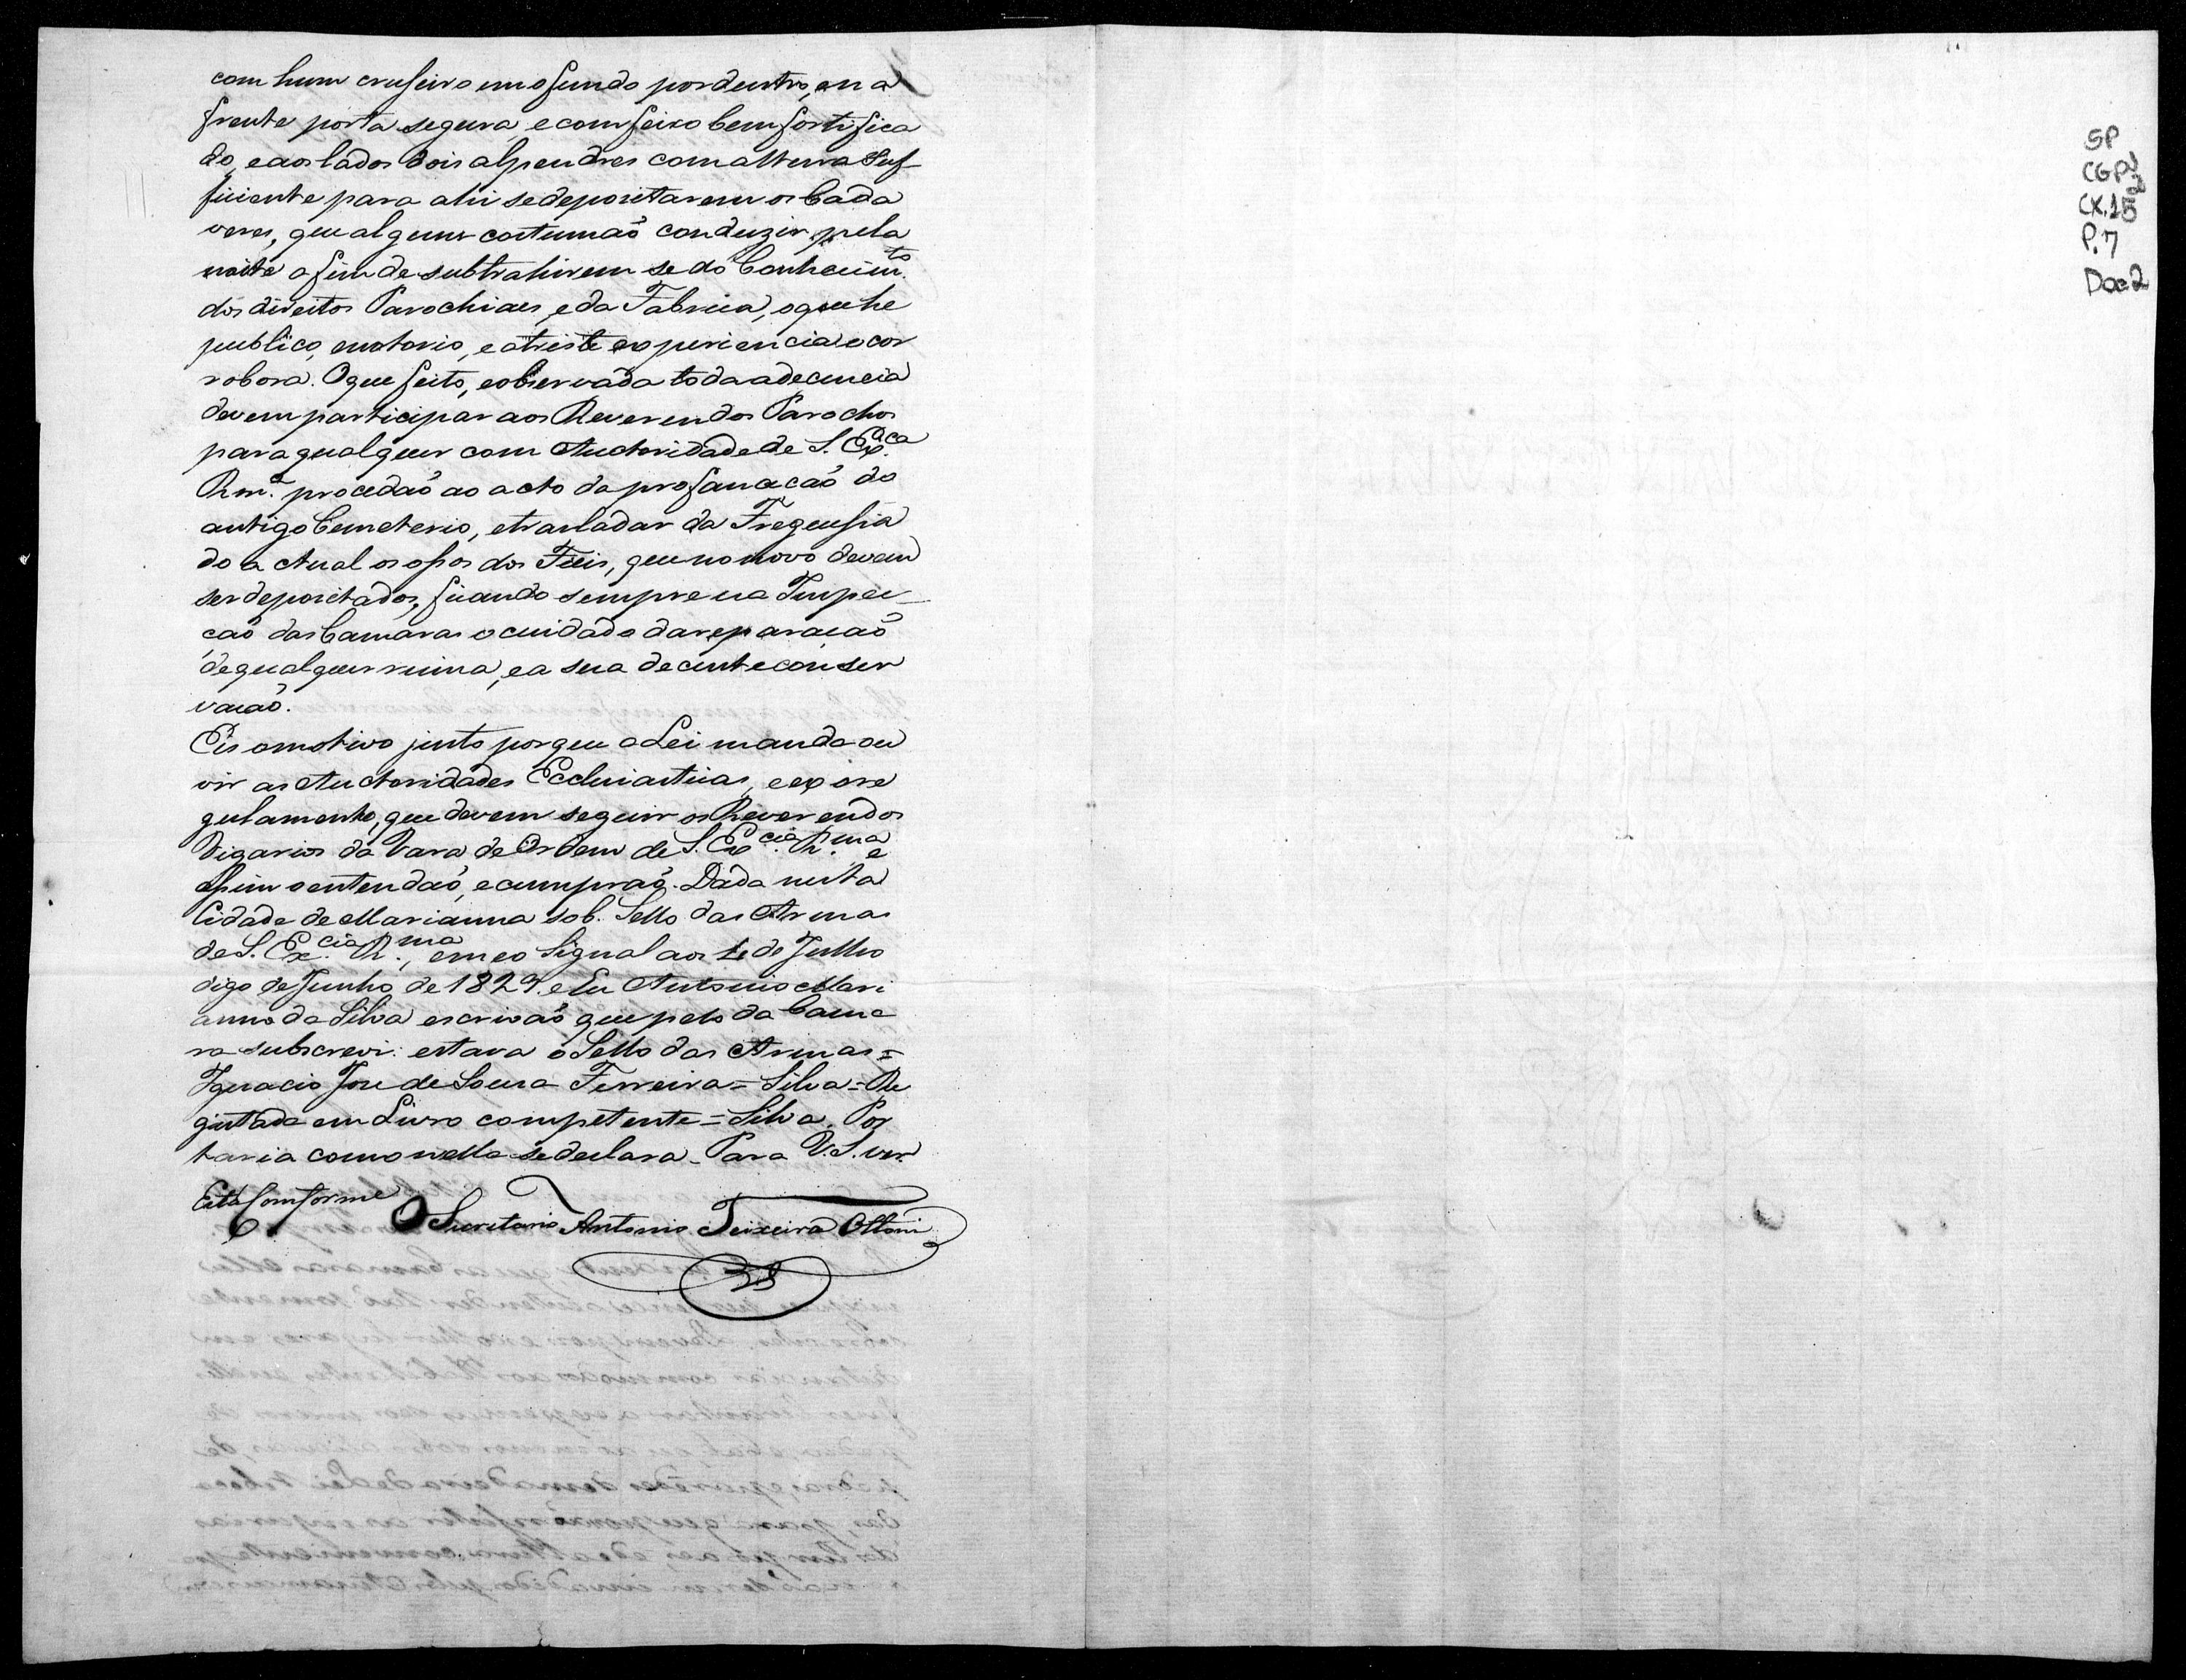 com hum cruseiro em o fundo por dentro, e na
frente porta segura e com feixo bem fortifica
do, e aos lados dois alpendres com altura suf
ficiente para ahi se depositarem os Cada
veres, que alguns costumaõ conduzir pela
noite a fim de subtrahirem se do Conhecim.to
dos direitos Parochiaes, e da Fabrica, o que he
publico, enotorio, e a triste experiencia o cor
robora. O que feito, e observada toda a decencia
devem participar aos Reverendos Parochos
para qualquer com Auctoridade de S. Ex.ca
Rm.a procedaõ ao acto da profanacaõ do
antigo Cemeterio, etrasladar da Freguesia
do actual os ossos dos Fieis, que no novo devem
ser depositados, ficando sempre na Inspec
çaõ das Camaras o cuidado da reparaçaõ
de qualquer ruina, e a sua decente conser
vacaõ.
Eis o motivo justo porque a Lei manda ou
vir as Auctoridades Ecclesiasticas, e eis o re
gulamento, que devem seguir os Reverendos
Vigarios da Vara de Ordem de S. Ex.cia R.ma e
assim o entendaõ, e cumpraõ. Dada nesta
Cidade de Marianna sob. Sello das Armas
de S. Ex.cia R.ma, em eo Signal aos 1 de Julho
digo de Junho de 1829. e Eu Antonio Mari
anno da Silva escrivaõ que pelo da Came
ra subscrevi. estava o Sello das Armas =
Ignacio Jose de Sousa Ferreira = Silva = Re
gistada em Livro competente = Silva. Por
taria como nella se declara - Para V.S. ver.
Está Comforme
O Secretario Antonio Teixeira Ottoni
SP
CGP2
CX.15
P.7
Doc 2